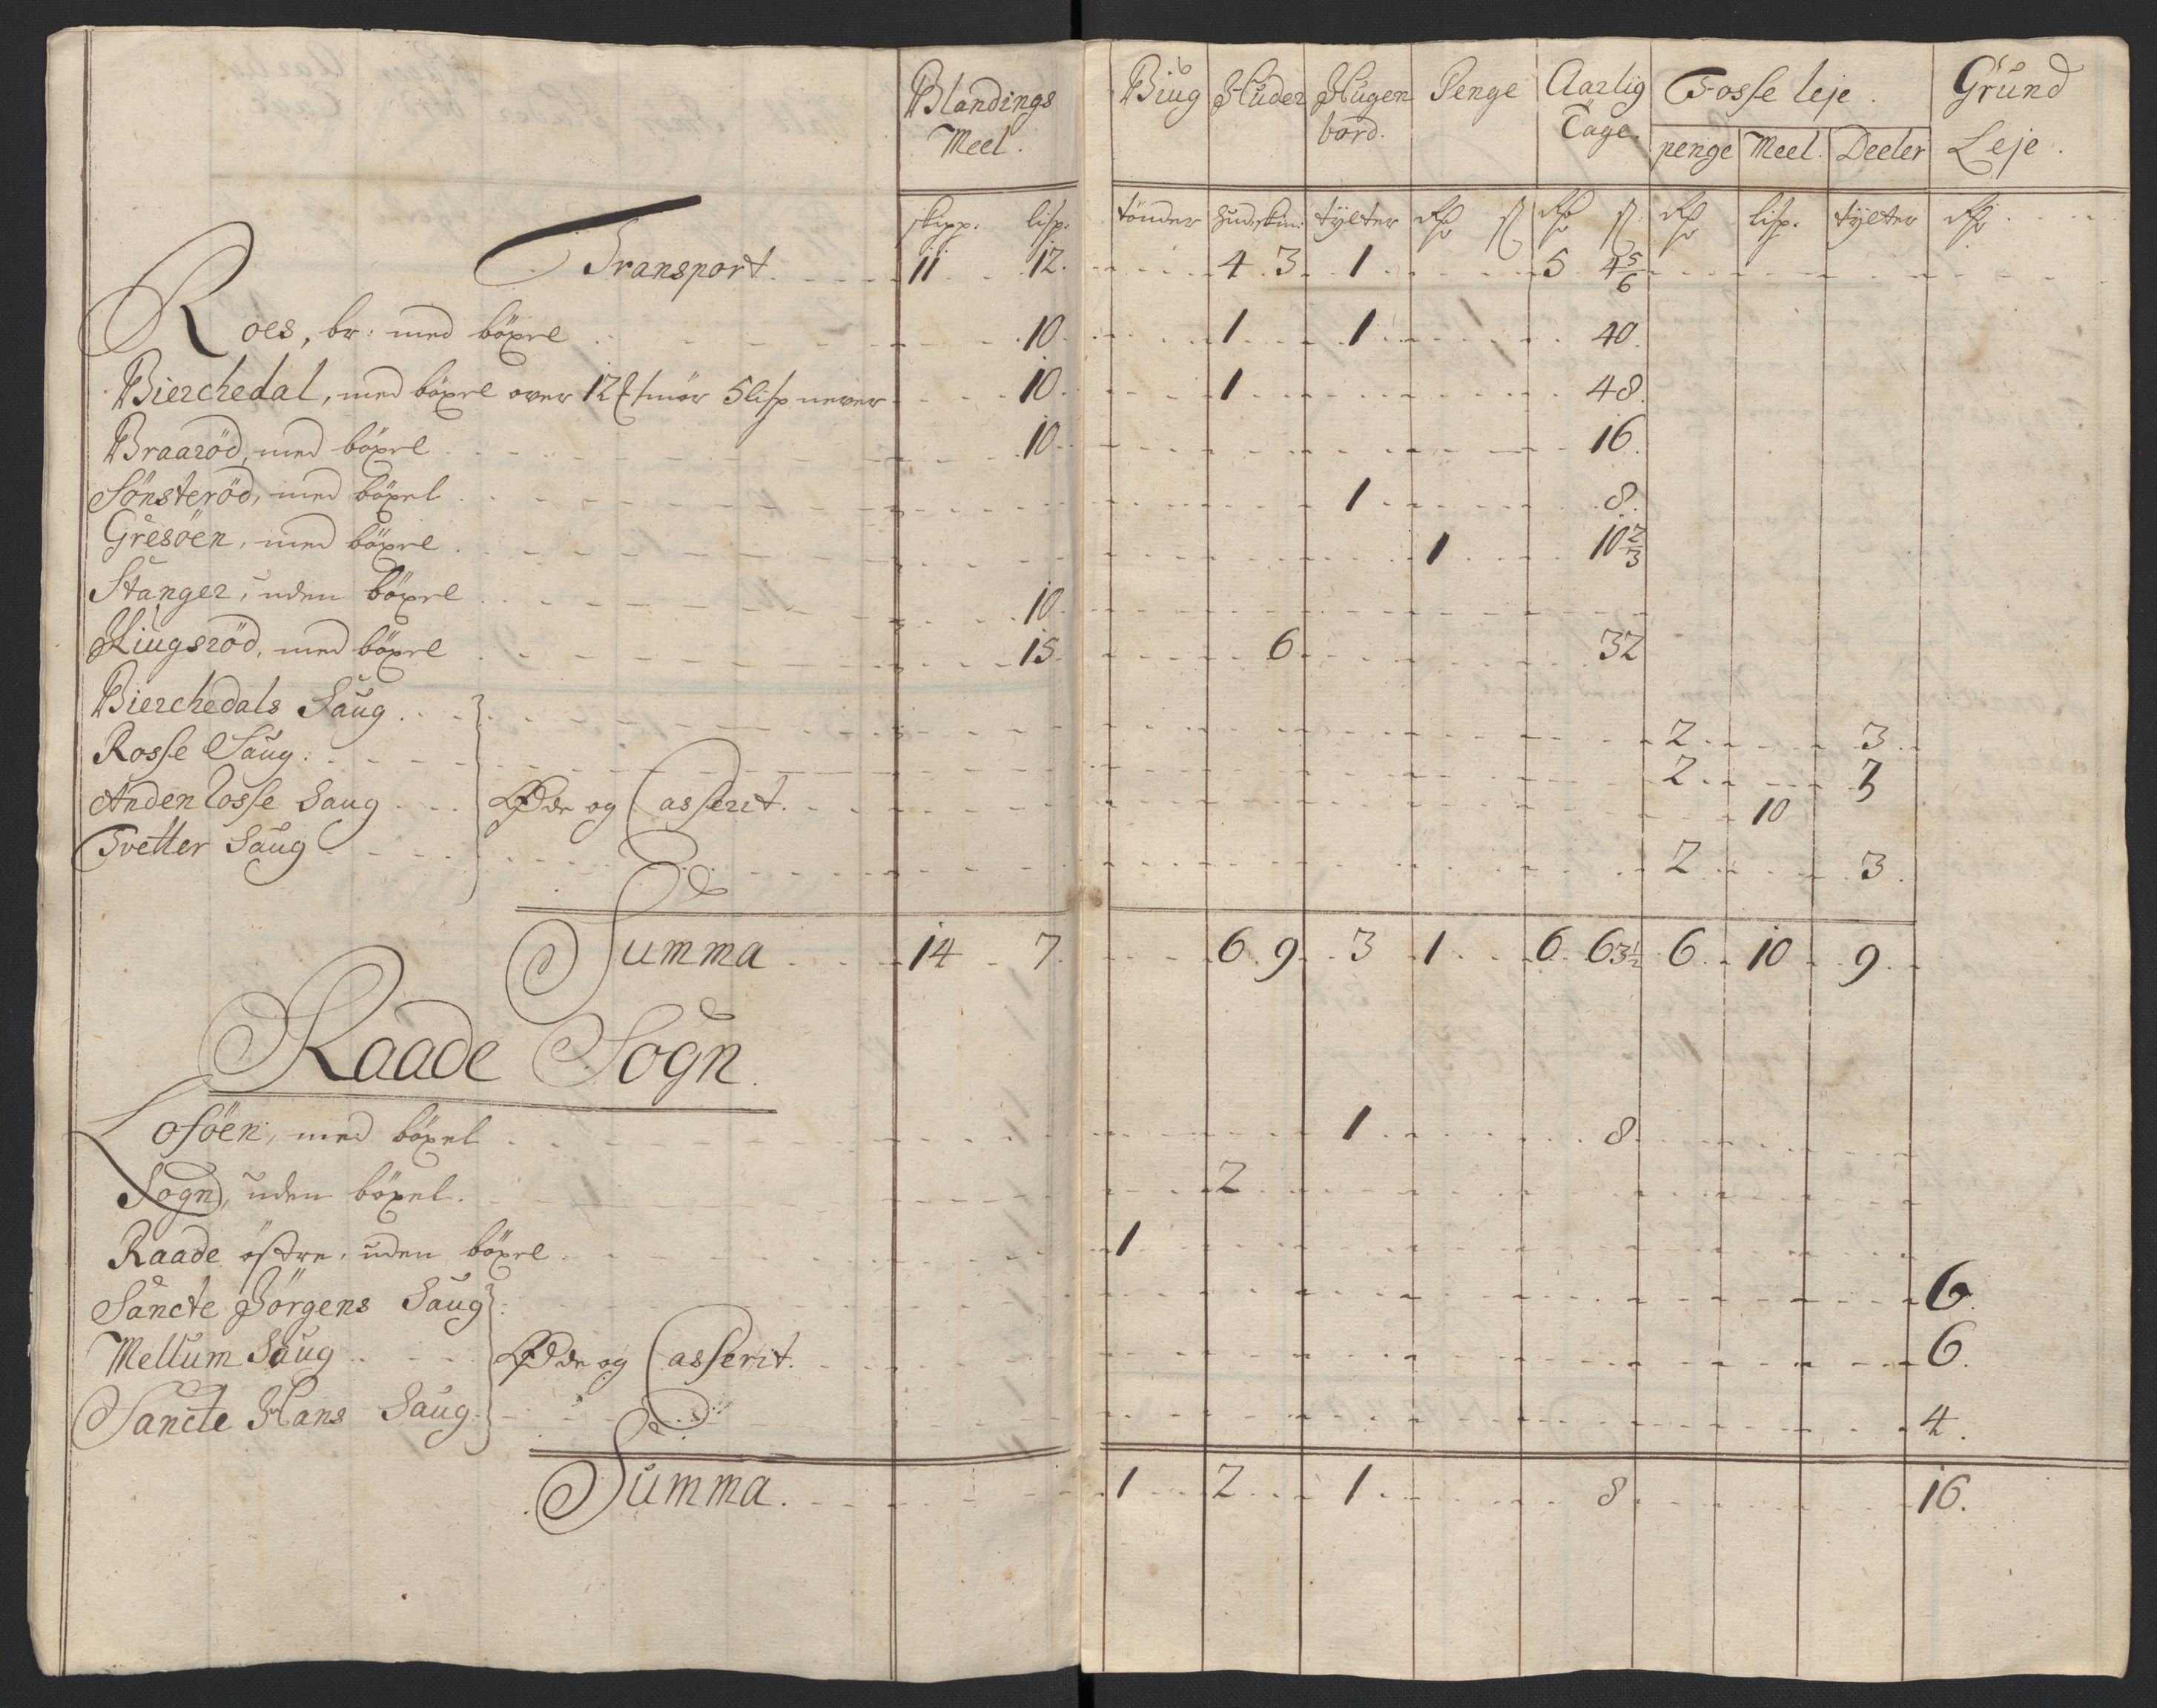 Blandings Meel. Biug Huder Hugen bord. Penge Aarlig Tage. Fosse leje. Grund Leje.
penge Meel. Deeler
skipp. lisp. tønder hud: skin: tÿlter rdr ß rdr ß rdr lisp. tÿlter rdr
Transport 11 12. 4. 3 1 5 4 5/6
Roes, br: med böxel 10. 1 1 40.
Bierchedal, med böxel over 12 smör 5 lisp never 10. 1 48.
Braaröd, med böxel 10. 16.
Sönsteröd, med böxel 1 8.
Gresöen, med böxel 1 10 2/3
Stanger, uden böxel 10.
Kiugsröd, med böxel 15. 6. 32
Bierchedals Saug 2 3.
Rosse Saug: 2 3
Anden Rosse Saug Øde og Casserit. 10
Tvetter Saug 2 3.
Summa 14 7. 6. 9 3 1 6. 63 1/2 6 10 9.
Raade Sogn.
Losöen, med böxel 1 8.
Sogn, uden böxel. 2
Raade östre, uden böxel 1
Sancte Jörgens Saug 6.
Mellum Saug Øde og Casserit. 6.
Sancte Hans Saug 4.
Summa. 1 2 1 8. 16.